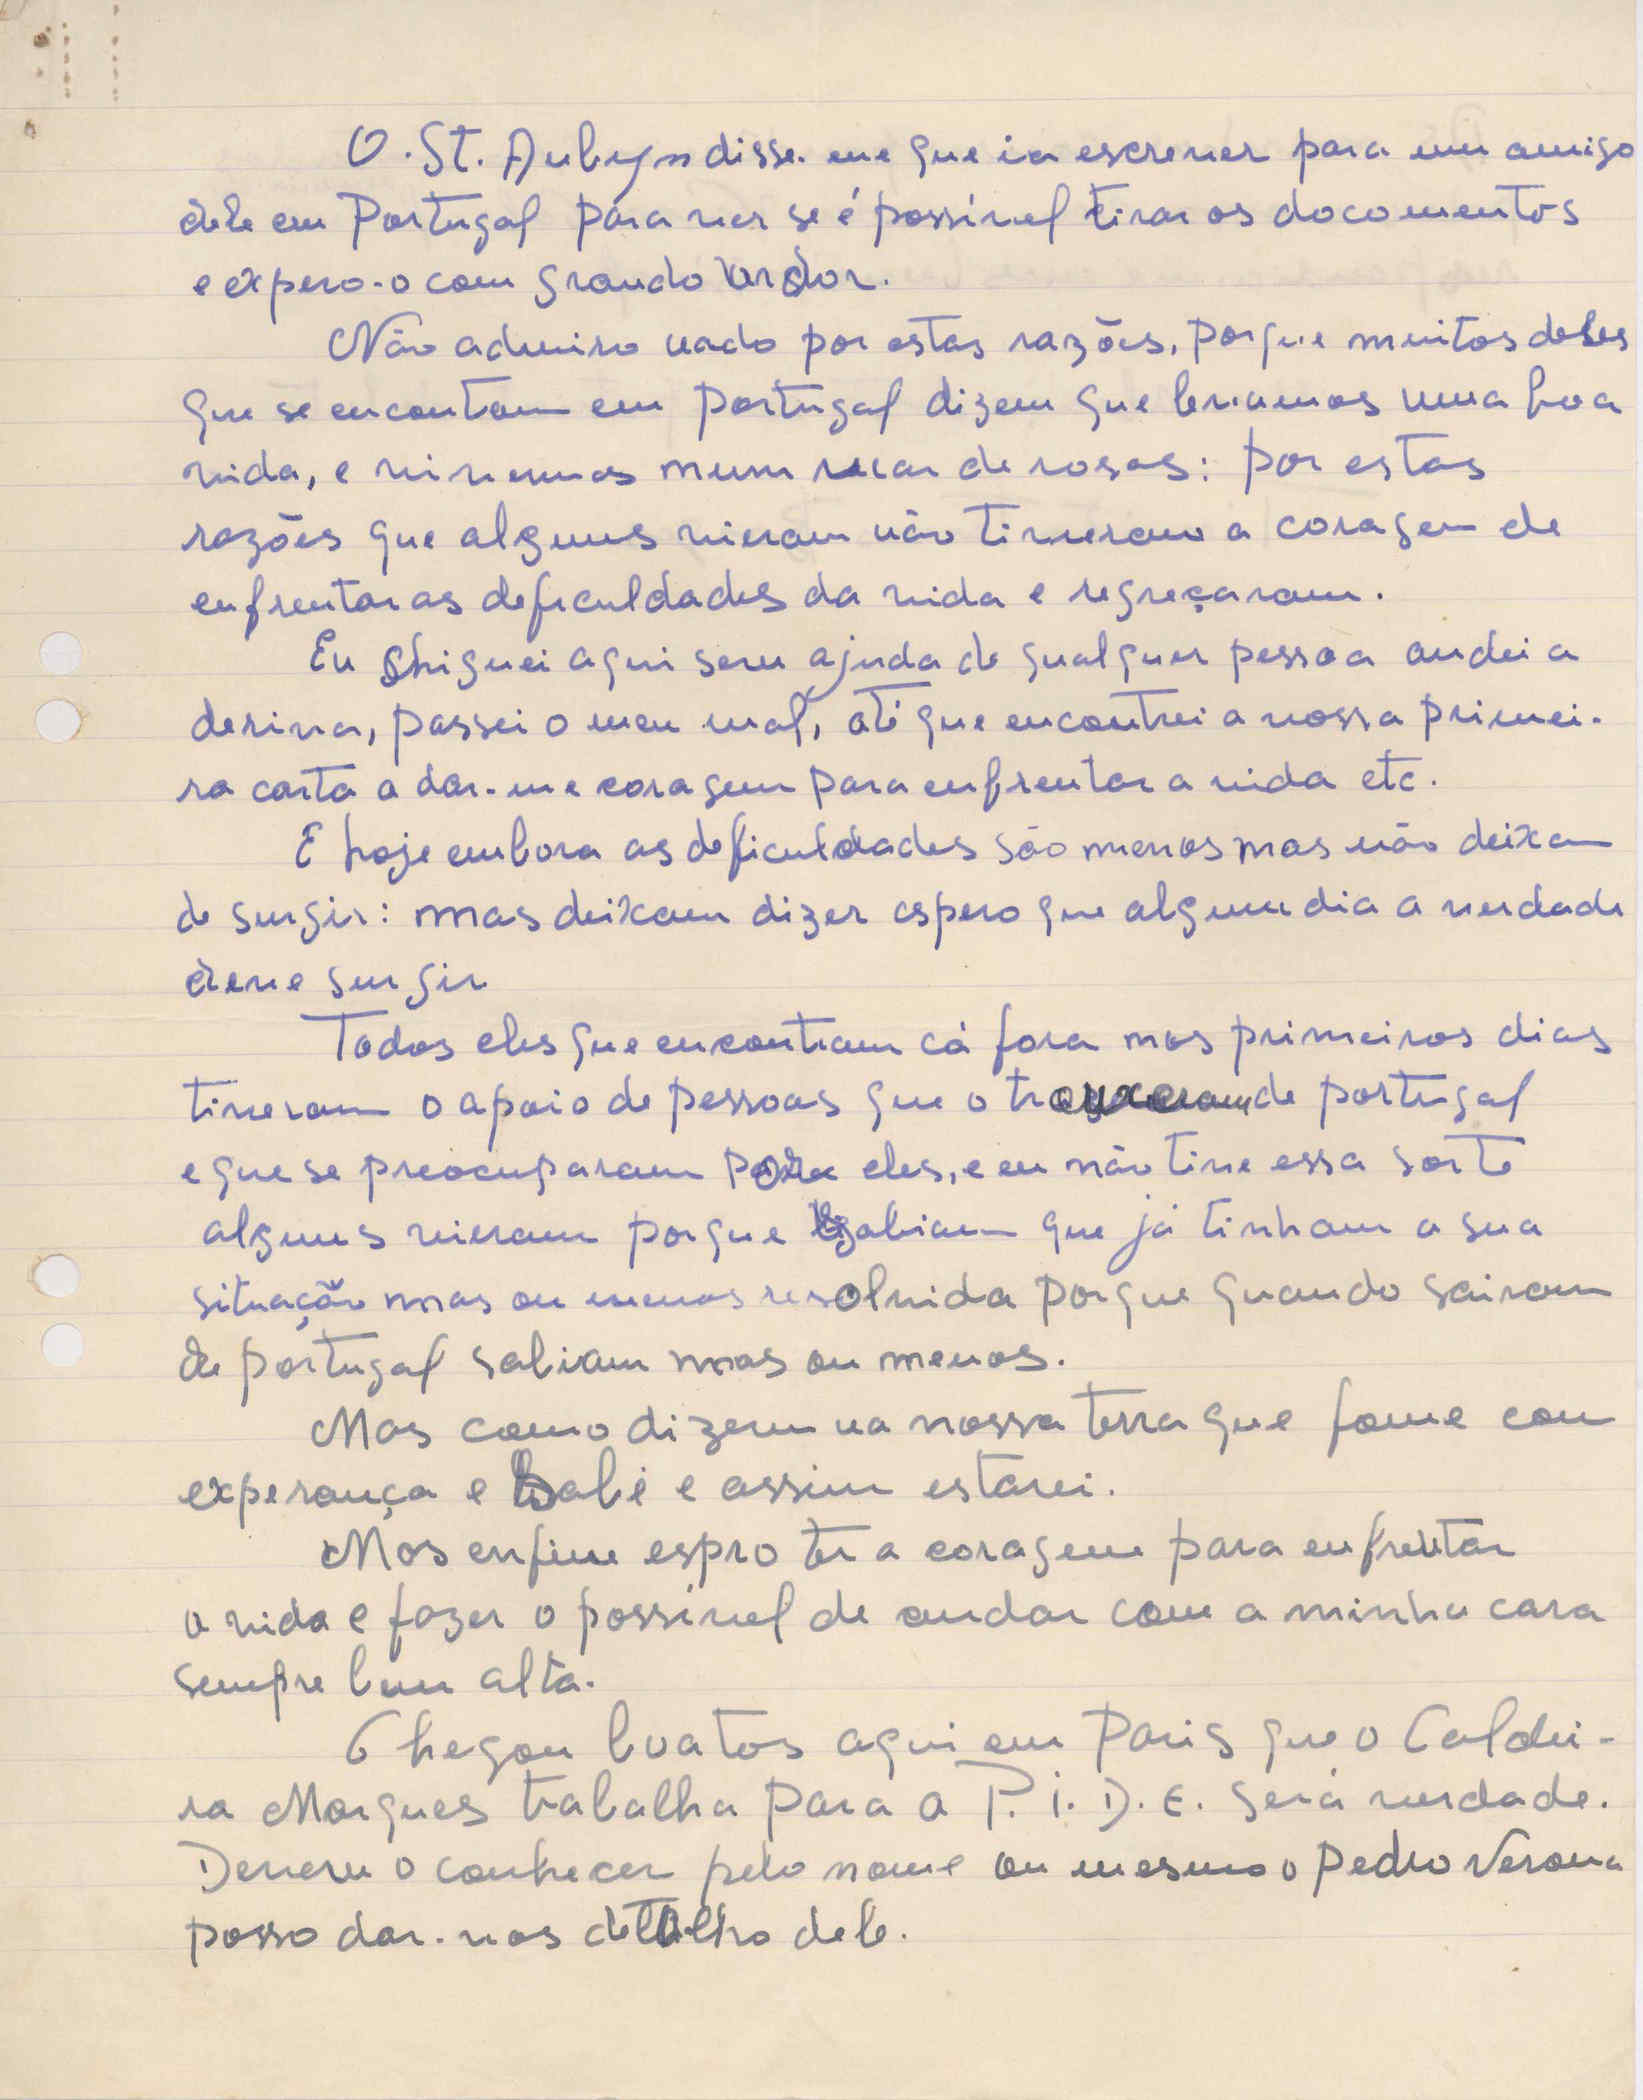 O. St. Aubyn disse-me que ia escrever para um amigo
dele em Portugal para ver se é possível tirar os documentos
e expero-o com grando ardor.
Não admiro nado por estas razões, porque muitos deles
que se encontam em Portugal dizem que levamos uma boa
vida, e vivemos num mar de rosas: por estas
razões que alguns vieram não tiveram a coragem de
enfrentar as deficuldades da vida e regreçaram.
Eu Chiguei aqui sem ajuda de qualquer pessoa andei a
deriva, passei o meu mal, até que encontrei a vossa primei-
ra carta a dar-me coragem para enfrentar a vida etc.
E hoje embora as deficuldades são menos mas não deixam
de surgir: mas deixam dizer espero que algum dia a verdade
deve surgir
Todos eles que encontram cá fora nos primeiros dias
tiveram o apoio de pessoas que o trouxeram de portugal
e que se preocuparam para eles, e eu não tive essa sorte
alguns vieram porque sabiam que já tinham a sua
situação mas ou menos resolvida porque quando sairam
de portugal sabiam mas ou menos.
Mas como dizem na nossa terra que fome com
experança e sabi e assim estarei.
Mas enfim espro ter a coragem para enfrentar
a vida e fazer o possível de andar com a minha cara
sempre bem alta.
Chegou buatos aqui em Paris que o Caldei-
ra Marques trabalha para a P. I. D. E. será verdade.
Devem o conhecer pelo nome ou mesmo o Pedro Verona
posso dar-vos detalho dele.